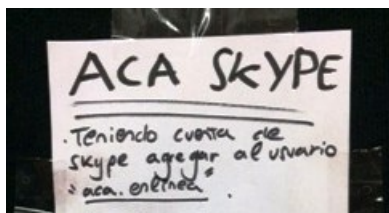 ACA SKYPE
. Teniendo cuenta de
skype agregar al usuario
"aca.enlinea".